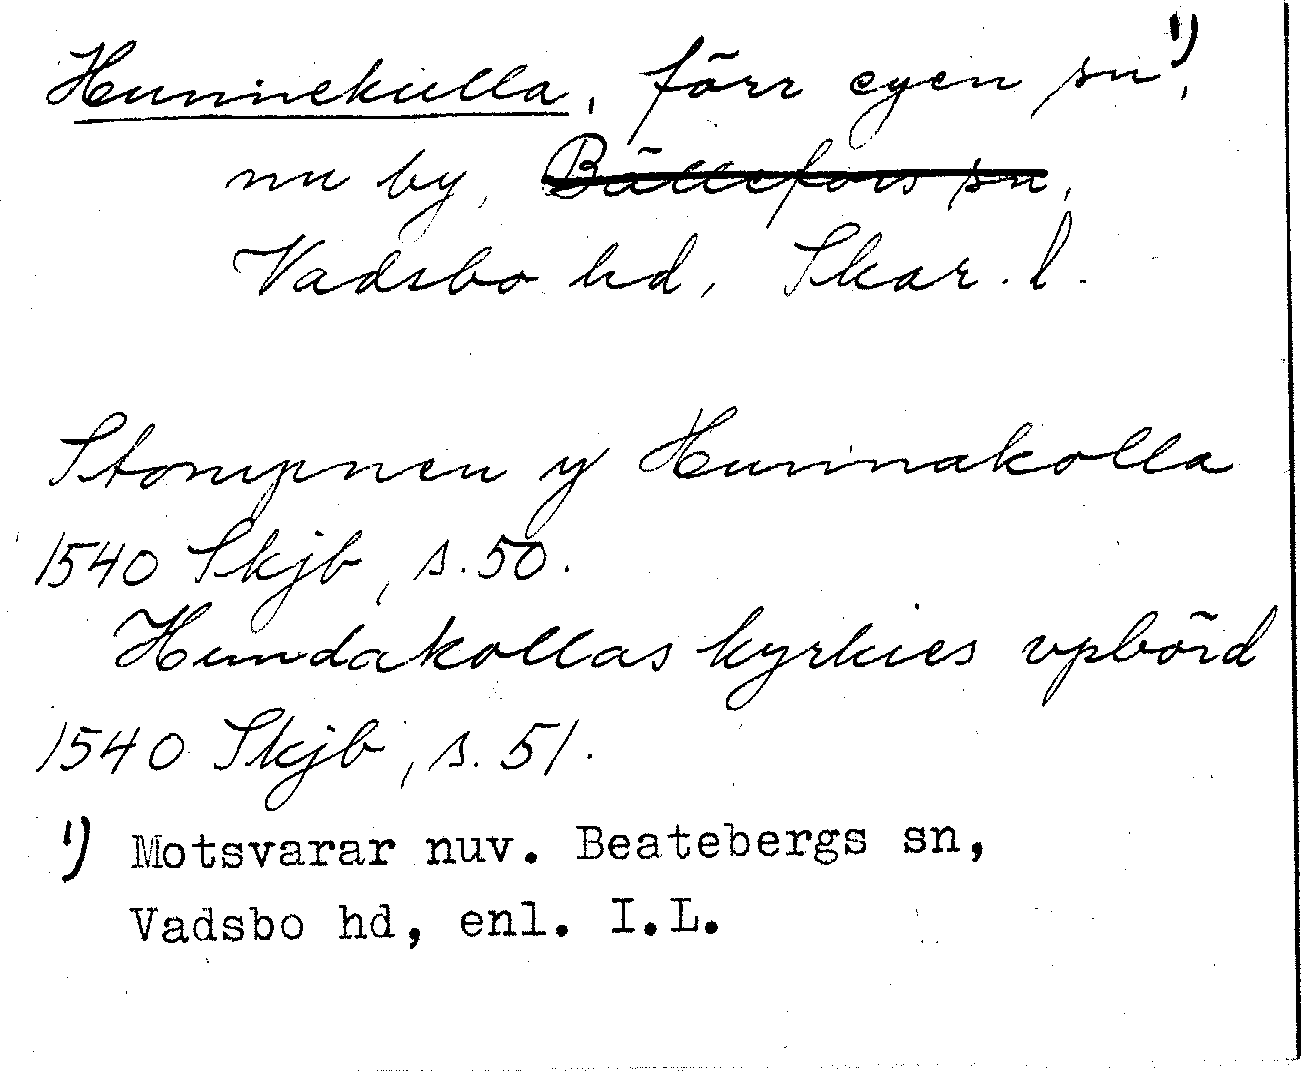 Hunnekulla, förr egen sn¹⁾,
nu by, Bällefors sn,
Vadsbo hd, Skar. l.
Stompnen y Hunnakolla
1540 Skjb, s. 50.
Hundakollas kyrkies vpbörd
1540 Skjb, s. 51.
¹⁾ Motsvarar nuv. Beatebergs sn,
Vadsbo hd, enl. I.L.